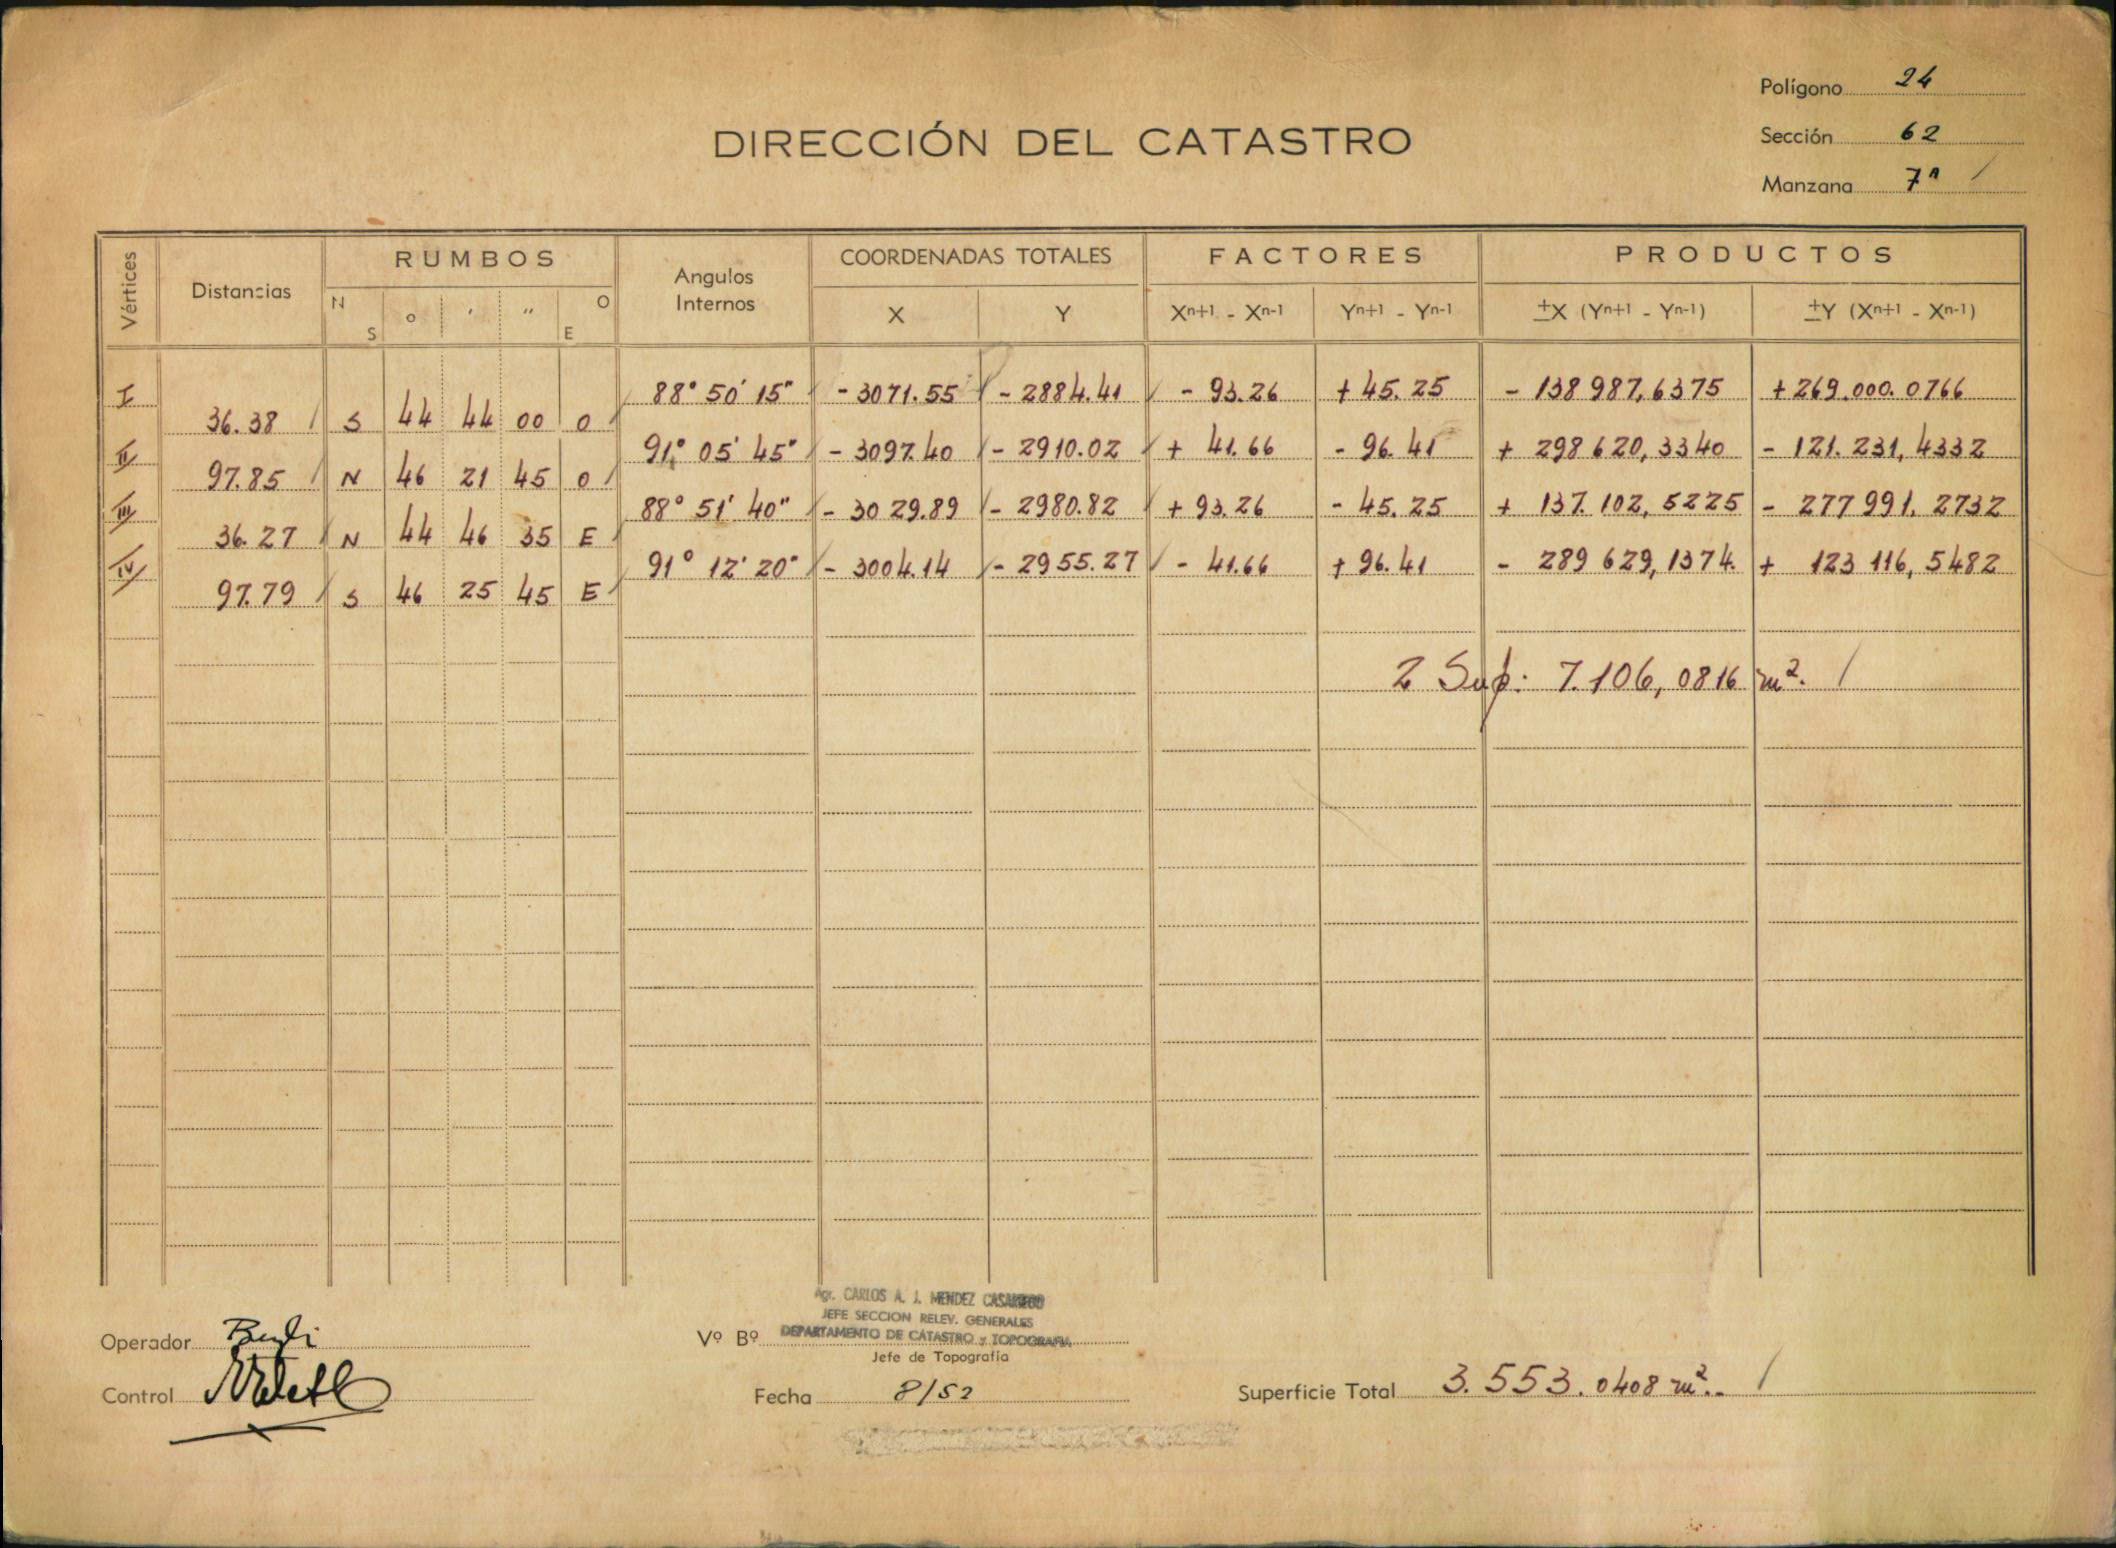 Polígono 24
DIRECCIÓN DEL CATASTRO
Sección 62
Manzana 7ª
Vértices Distancias RUMBOS Angulos Internos COORDENADAS TOTALES FACTORES PRODUCTOS
N S o ' " O E X Y Xn+1 - Xn-1 Yn+1 - Yn-1 ±X (Yn+1 - Yn-1) ±Y (Xn+1 - Xn-1)
I 88° 50' 15" - 3071.55 - 2884.41 - 93.26 + 45.25 - 138 987,6375 + 269.000.0766
36.38 S 44 44 00 O
II 91° 05' 45" - 3097.40 - 2910.02 + 41.66 - 96.41 + 298 620,3340 - 121.231,4332
97.85 N 46 21 45 O
III 88° 51' 40" - 3029.89 - 2980.82 + 93.26 - 45.25 + 137.102,5225 - 277 991.2732
36.27 N 44 46 35 E
IV 91° 12' 20" - 3004.14 - 2955.27 - 41.66 + 96.41 - 289 629,1374 + 123 116,5482
97.79 S 46 25 45 E
2 Sup: 7.106,0816 m².
Agr. CARLOS A. J. MENDEZ CASARIEGO
JEFE SECCION RELEV. GENERALES
Operador Vº Bº DEPARTAMENTO DE CATASTRO y TOPOGRAFIA
Jefe de Topografía
Control Fecha 8/52 Superficie Total 3.553.0408 m².